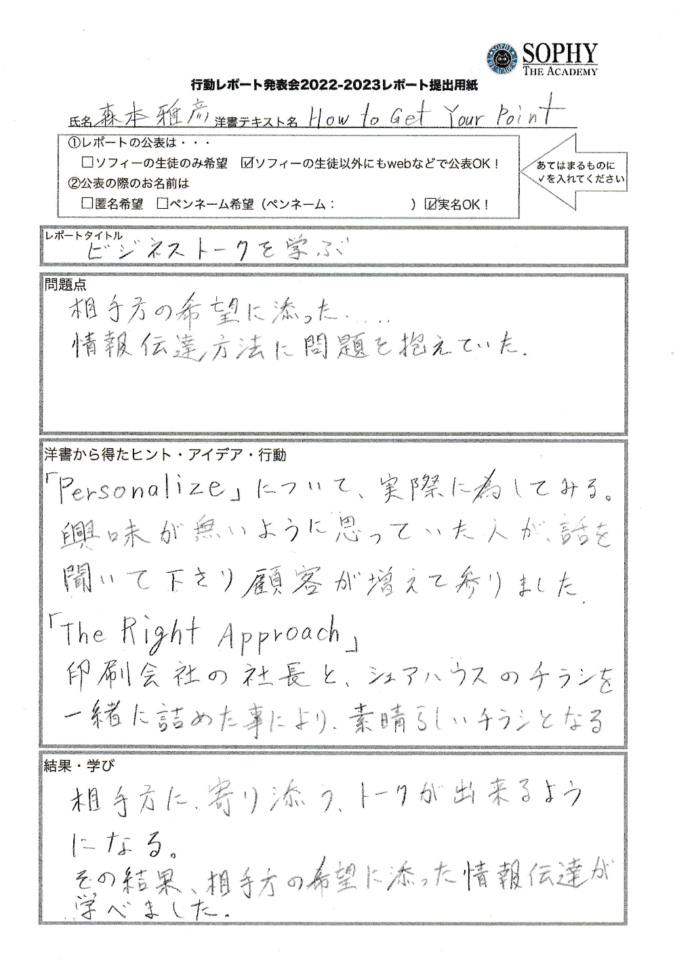 SOPHY
THE ACADEMY
行動レポート発表会2022-2023レポート提出用紙
氏名 森本雅彦 洋書テキスト名 How to Get Your Point
①レポートの公表は・・・
□ソフィーの生徒のみ希望 ☑ソフィーの生徒以外にもwebなどで公表OK！
②公表の際のお名前は
□匿名希望 □ペンネーム希望（ペンネーム： ）☑実名OK！
あてはまるものに
✓を入れてください
レポートタイトル
ビジネストークを学ぶ
問題点
相手方の希望に添った.....
情報伝達方法に問題を抱えていた.
洋書から得たヒント・アイデア・行動
「Personalize」について、実際に為してみる。
興味が無いように思っていた人が、話を
聞いて下さり顧客が増えて参りました.
「The Right Approach」
印刷会社の社長と、シェアハウスのチラシを
一緒に詰めた事により、素晴らしいチラシとなる
結果・学び
相手方に、寄り添う、トークが出来るよう
になる。
その結果、相手方の希望に添った情報伝達が
学べました.